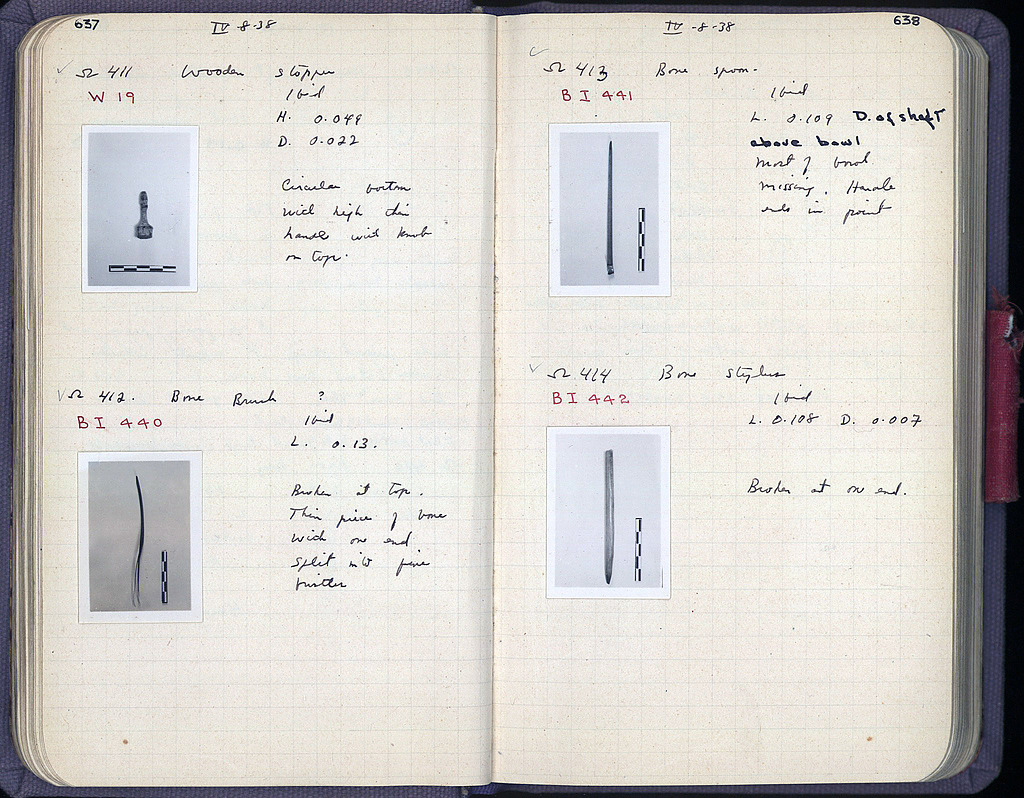 637
IV-8-38
Ω 411 Wooden stopper
W 19
Ibid
H. 0.049
D. 0.022
Circular bottom
with high thin
handle with knob
on top.
Ω 412. Bone Brush ?
BI 440
Ibid
L. 0.13.
Broken at top.
Thin piece of bone
with one end
split into fine
bristles
638
IV-8-38
Ω 413 Bone spoon.
BI 441
Ibid
L. 0.109 D. of shaft
above bowl
Most of bowl
missing. Handle
ends in point
Ω 414 Bone stylus
BI 442
Ibid
L. 0.108 D. 0.007
Broken at one end.